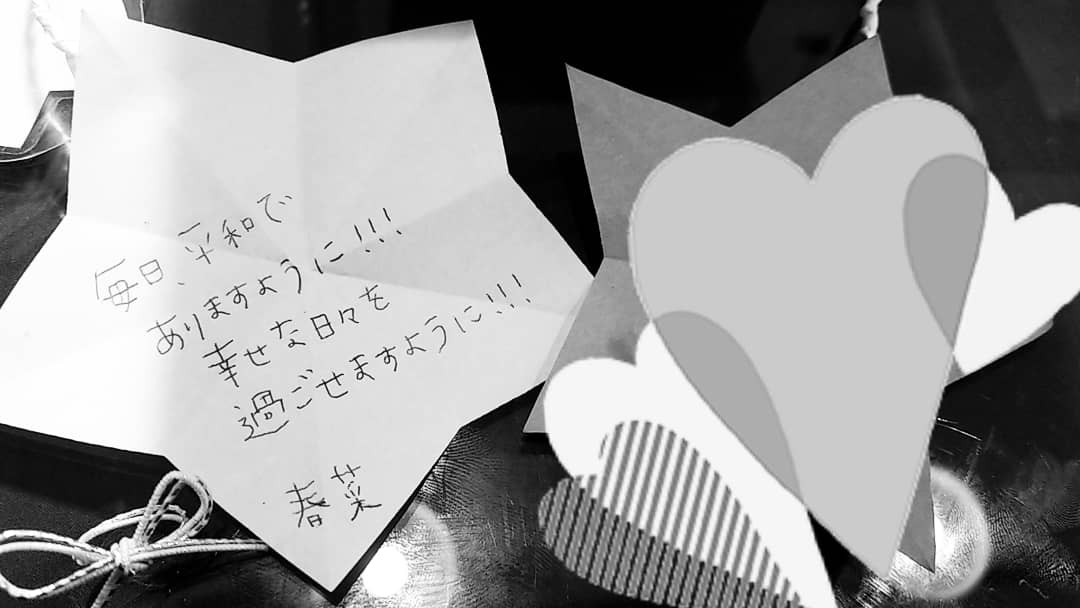 毎日、平和で
ありますように!!!
幸せな日々を
過ごせますように!!!
春菜